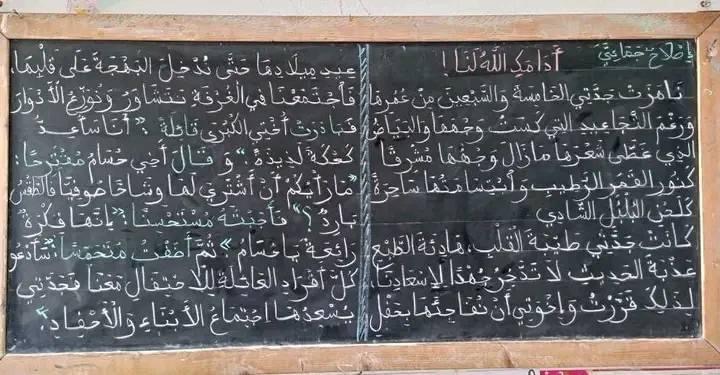 إصلاح جماعي
أدامك الله لنا!
ناهزت جدّتي الخامسة والسّبعين من عمرها
ورغم التّجاعيد التي كست وجهها والبياض
الذي غطّى شعرها مازال وجهها مشرقا
كنور القمر الرّطيب وابتسامتها ساحرة
كلحن البلبل الشّادي
كانت جدّتي طيّبة القلب، هادئة الطّبع
عذبة الحديث لا تدّخر جهدا لإسعادنا،
لذلك قرّرت وإخوتي أن نفاجئها بحفل
عيد ميلادها حتّى ندخل البهجة على قلبها،
فاجتمعنا في الغرفة نتشاور ونوزّع الأدوار
فبادرت أختي الكبرى قائلة: "أنا سأعدّ
كعكة لذيذة" وقال أخي حسام مقترحا:
"ما رأيكم أن أشتري لها وشاحا صوفيّا فالطّقس
بارد؟" فأجبته مستحسنا: "إنّها فكرة
رائعة يا حسام" ثمّ أضفت متحمّسا: "سأدعو
كلّ أفراد العائلة للاحتفال معنا فجدّتي
يسعدها اجتماع الأبناء والأحفاد".